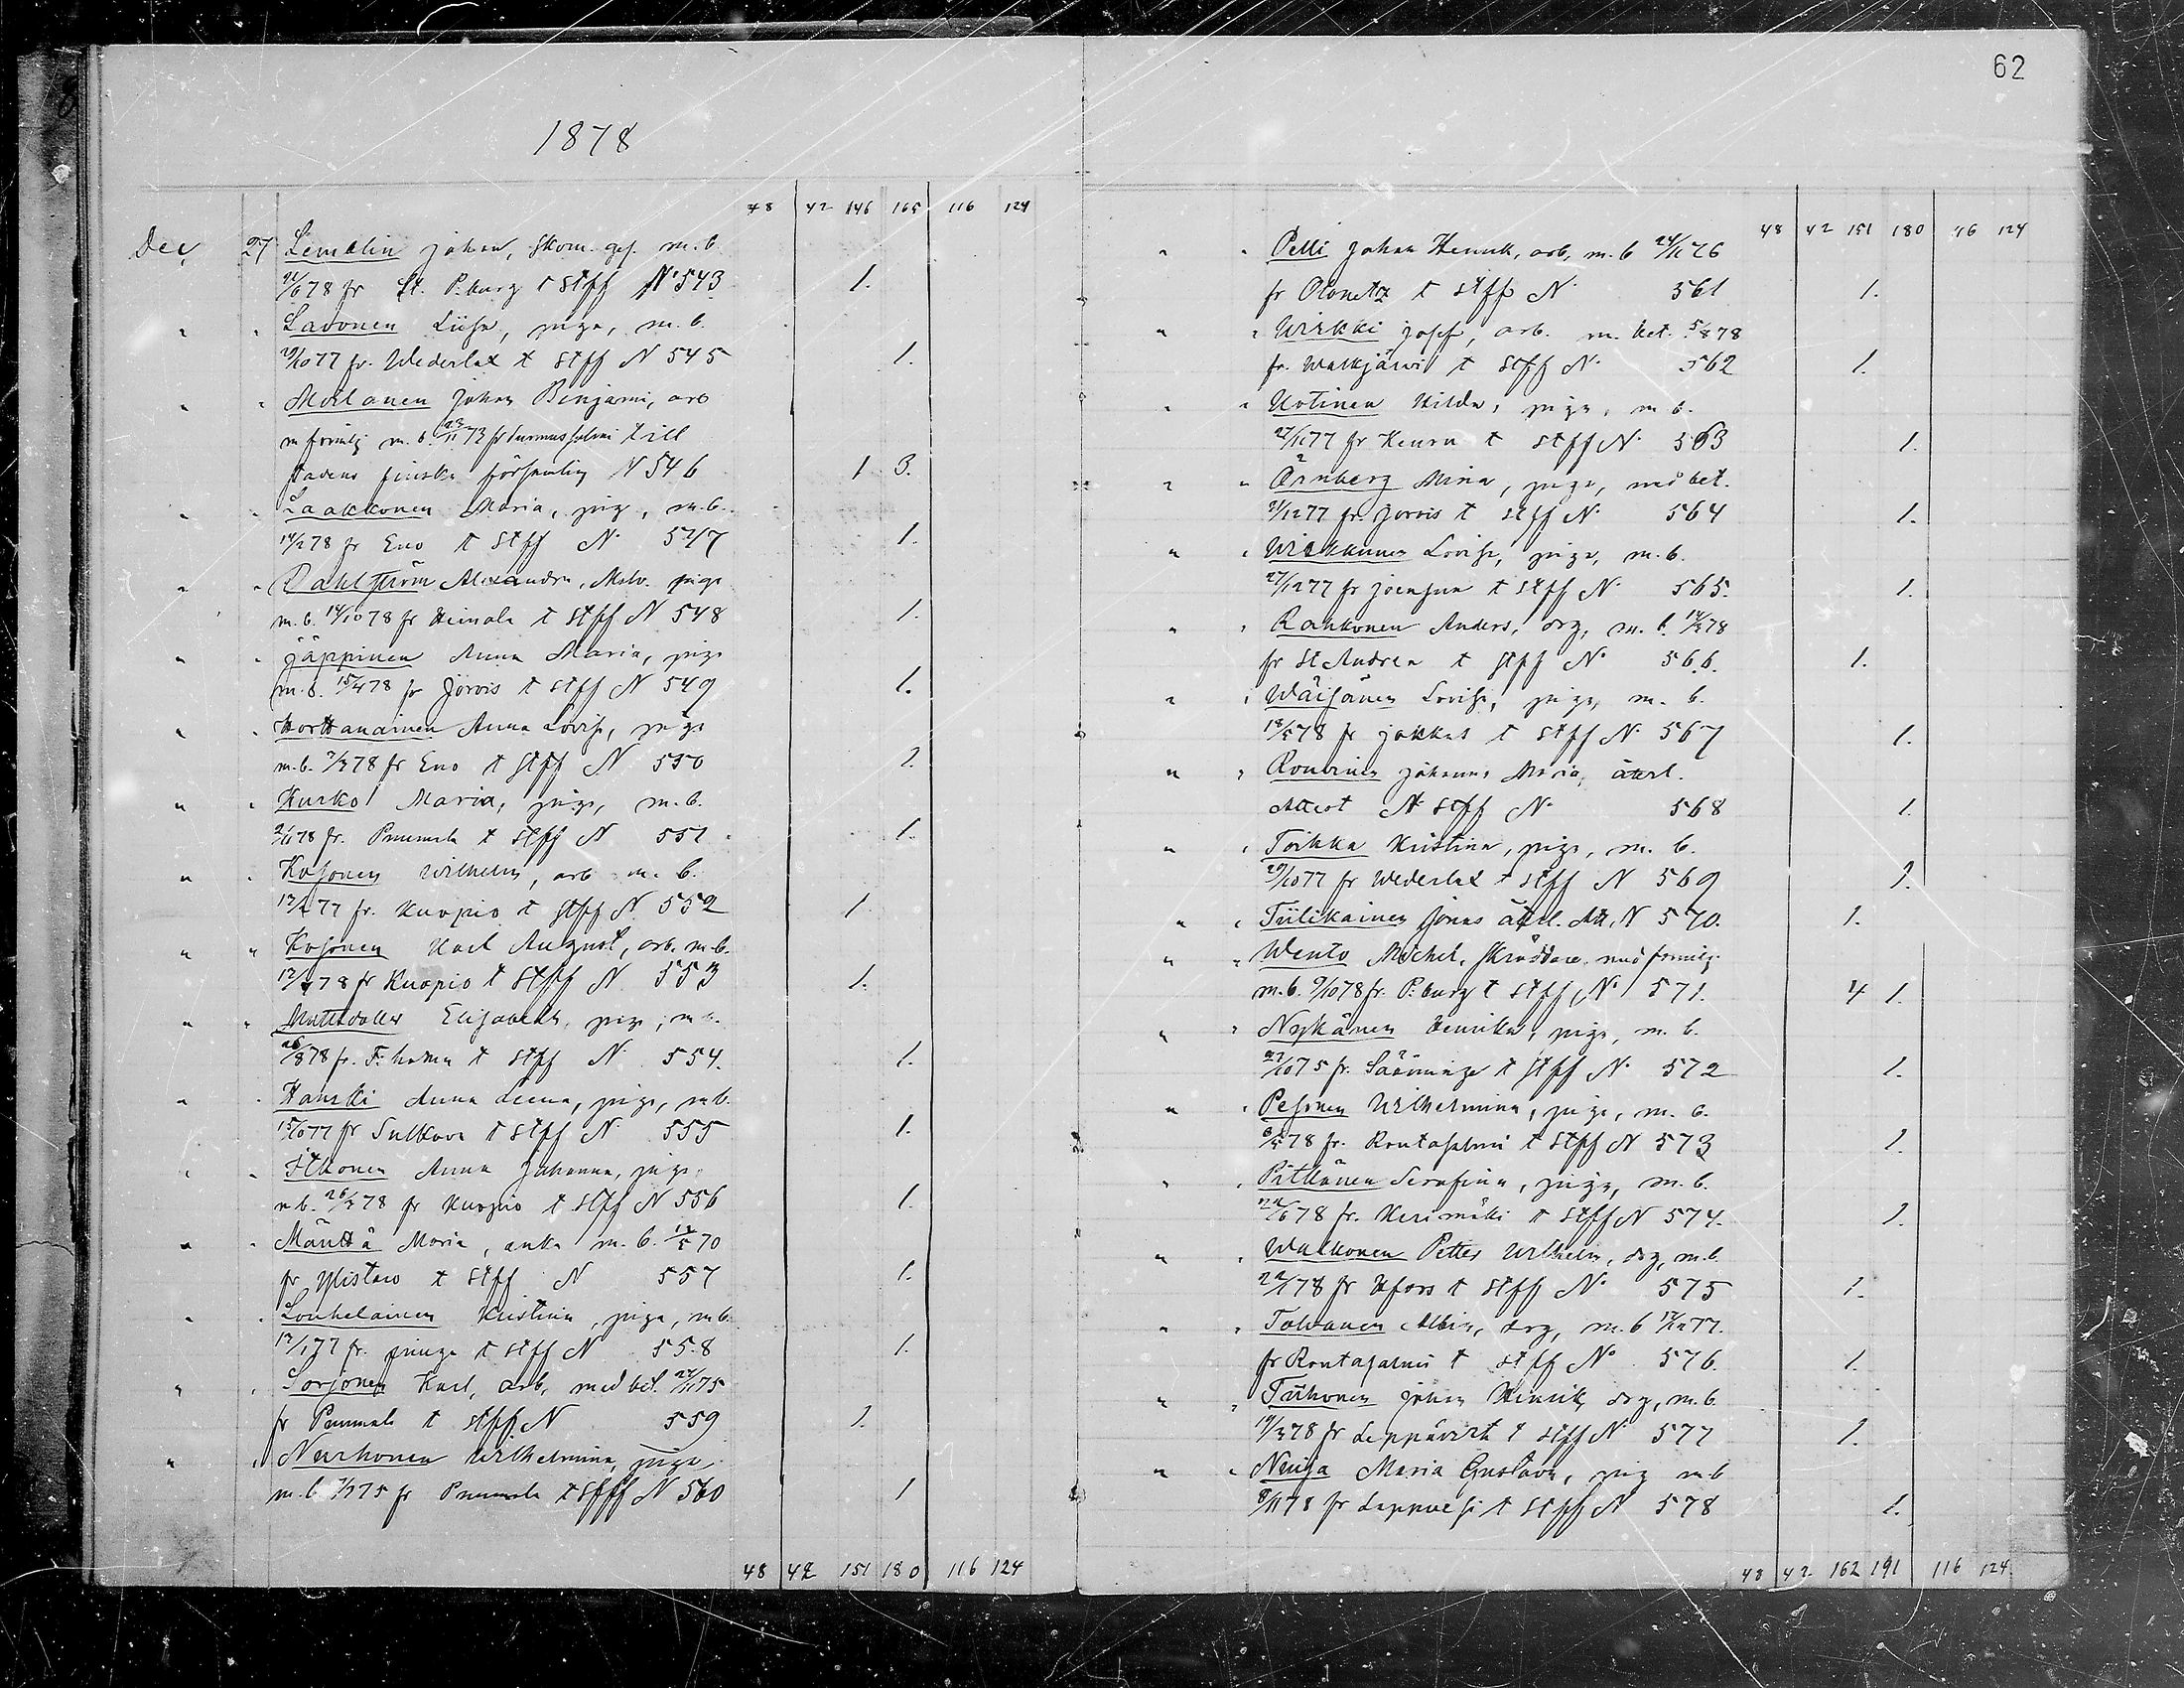 62
1878
48 42 146 165 116 124
Dec. 27 Lemelin Johan, skom. ges. m.b.
22/6 78 fr St. P.burg t Stff N 543 1.
" " Lavonen Liisa, piga, m.b.
29/10 77 fr. Wederlax t Stff N 545 1.
" " Moilanen Johan Benjami, arb
m familj m.b. 23/11 73 fr Suomussalmi till
stadens finska församling N 546 1 3.
" " Laakkonen Maria, piga, m.b.
14/2 78 fr Eno t Stff N 547 1.
" " Dahlström Alexandra, piga
m.b. 14/10 78 fr Heinola t Stff N 548 1.
" " Jäppinen Anna Maria, piga
m.b. 15/4 78 fr Jorois t Stff N 549 1.
" " Horttanainen Anna Lovisa, piga
m.b. 7/3 78 fr Eno t Stff N 550 1.
" " Kurko Maria, piga, m.b.
fr. Puumala t Stff N 551 1.
" " Kosonen Wilhelm, arb m.b.
77 fr. Kuopio t Stff N 552 1.
" " Kosonen Karl August, arb. m.b.
78 fr Kuopio t Stff N 553 1.
" " Elisabeth, piga, m.b.
26/8 78 fr. F:hamn t Stff N 554. 1.
" " Hanski Anna Leena, piga, m.b.
15/10 77 fr Sulkava t Stff N 555 1.
" " Itkonen Anna Johanna, piga
m.b. 26/3 78 fr Kuopio t Stff N 556 1.
" " Mänttä Maria, enka m.b. 70
fr Ylistaro t Stff N 557 1.
" " Louhelainen Kristina, piga, m.b.
77 fr. Juuga t Stff N 558 1.
" " Sorjonen Karl, arb, med bet. 75
fr Puumala t Stff N 559 1.
" " Nurhonen Wilhelmina, piga,
m.b 75 fr Puumala t Stff N 560 1
48 42 151 180 116 124
48 42 151 180 116 124
" " Pelli Johan Henrik, arb, m.b 76
fr Olonetz t Stff N 561 1.
" " Wirkki Josef, arb. m. bet. 5/8 78
fr. Walkjärvi t Stff N 562 1.
" " Uotinen Hilda, piga, m b.
77 fr Keuru t Stff N 563 1.
" " Örnberg Mina, piga, med bet.
77 fr. Jorois t Stff N 564 1.
" " Wirkkunen Lovisa, piga, m.b.
27/12 77 fr Joensuu t Stff N 565. 1.
" " Rankonen Anders, drg, m.b. 78
fr St Andrea t Stff N 566. 1.
" " Wäisänen Lovisa, piga, m.b.
78 fr Jokkas t Stff N 567 1.
" " Rouvinen Johanna Maria, återl.
Attest N Stff N 568 1.
" " Toikka Kristina, piga, m.b.
29/10 77 fr Wederlax t Stff N 569 1.
" " Tiilikainen Jonas återl. Att. N 570. 1.
" " Wento Michel, Skräddare med familj
m.b. 9/10 78 fr. P.burg t Stff N 571. 4 1.
" " Nykänen Henrika, piga, m.b.
27/10 75 fr. Sääminge t Stff N 572 1.
" " Pesonen Wilhelmina, piga, m.b.
78 fr. Rantasalmi t Stff N 573 1.
" " Pitkänen Serafina, piga, m.b.
22/6 78 fr. Kerimäki t Stff N 574. 1.
" " Walkonen Petter Wilhelm, drg, m.b.
78 fr Hfors t Stff N 575 1.
" " Tolvanen Albin, drg, m.b 77.
fr Rantasalmi t Stff N 576. 1.
" " Tiihonen Johan Henrik, drg, m.b.
19/3 78 fr Leppävirta t Stff N 577 1.
" " Neuja Maria Gustava, pig m.b
8/11 78 fr Lappvesi t Stff N 578 1.
48 42 162 191 116 124